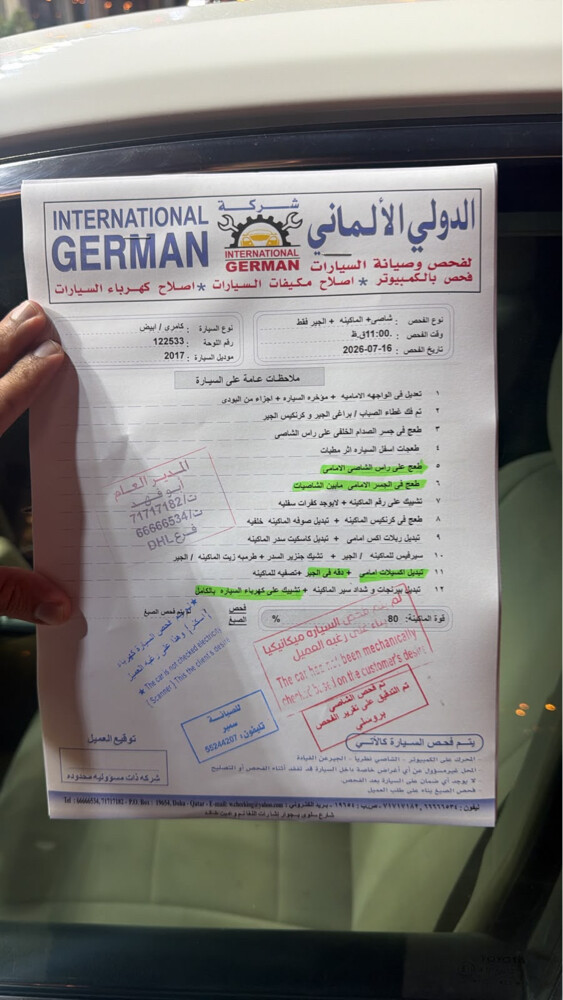 INTERNATIONAL
GERMAN
شركة
INTERNATIONAL
GERMAN
الدولي الألماني
لفحص وصيانة السيارات
فحص بالكمبيوتر * اصلاح مكيفات السيارات * اصلاح كهرباء السيارات
نوع الفحص : شاصى+ الماكينه + الجير فقط
وقت الفحص : 11:00.ق.ظ
تاريخ الفحص : 2026-07-16
نوع السيارة : كامري / ابيض
رقم اللوحة : 122533
موديل السيارة : 2017
ملاحظات عامة على السيارة
١ تعديل فى الواجهه الاماميه + مؤخره السياره + اجزاء من البودى
٢ تم فك غطاء الصباب / براغى الجير و كرنكيس الجير
٣ طعج فى جسر الصدام الخلفى على راس الشاصى
٤ طعجات اسفل السياره اثر مطبات
٥ طعج على راس الشاصى الامامى
٦ طعج فى الجسر الامامى مابين الشاصيات
٧ تشييك على رقم الماكينه + لايوجد كفرات سفليه
٨ طعج فى كرنكيس الماكينه + تبديل صوفه الماكينه خلفيه
٩ تبديل ربلات اكس امامى + تبديل كاسكيت سدر الماكينه
١٠ سيرفيس للماكينه / الجير + تشيك جنزير السدر + طرمبه زيت الماكينه / الجير
١١ تبديل اكسيلات امامى + دقه فى الجير +تصفيه للماكينه
١٢ تبديل بيرنجات و شداد سير الماكينه + تشييك على كهرباء السياره بالكامل
قوة الماكينة: 80 %
فحص الصبغ
لم يتم فحص الصبغ
المدير العام
ابو فهد
ت/71717182
ت/66666534
فرع DHL
لم يتم فحص السيارة كهرباء
( اسكنر ) وهذا على رغبه العميل
* The car is not checked electricity
( Scanner ) This the client's desire
لم يتم فحص السياره ميكانيكيا
بناء على رغبه العميل
The car has not been mechanically
checked based on the customer's desire
تم فحص الشاصي
تم التدقيق على تقرير الفحص
بروسلي
للصيانة
سمير
تليفون: 50244207
توقيع العميل
شركة ذات مسوولية محدوده
يتم فحص السيارة كالآتي
- المحرك على الكمبيوتر - الشاصي نظريا - الجيرمن القيادة
- المحل غيرمسؤول عن أي أغراض خاصة داخل السيارة قد تفقد أثناء الفحص أو التصليح
- لا يوجد أي ضمان على السيارة بعد الفحص.
- فحص الصبغ بناء على طلب العميل
Tel : 66666534, 71717182 - P.O. Box : 19654, Doha - Qatar - E-mail:
تيفون: ٦٦٦٦٦٥٣٤ , ٧١٧١٧١٨٢ - ص.ب: ١٩٦٥٤ - بريد الكتروني: